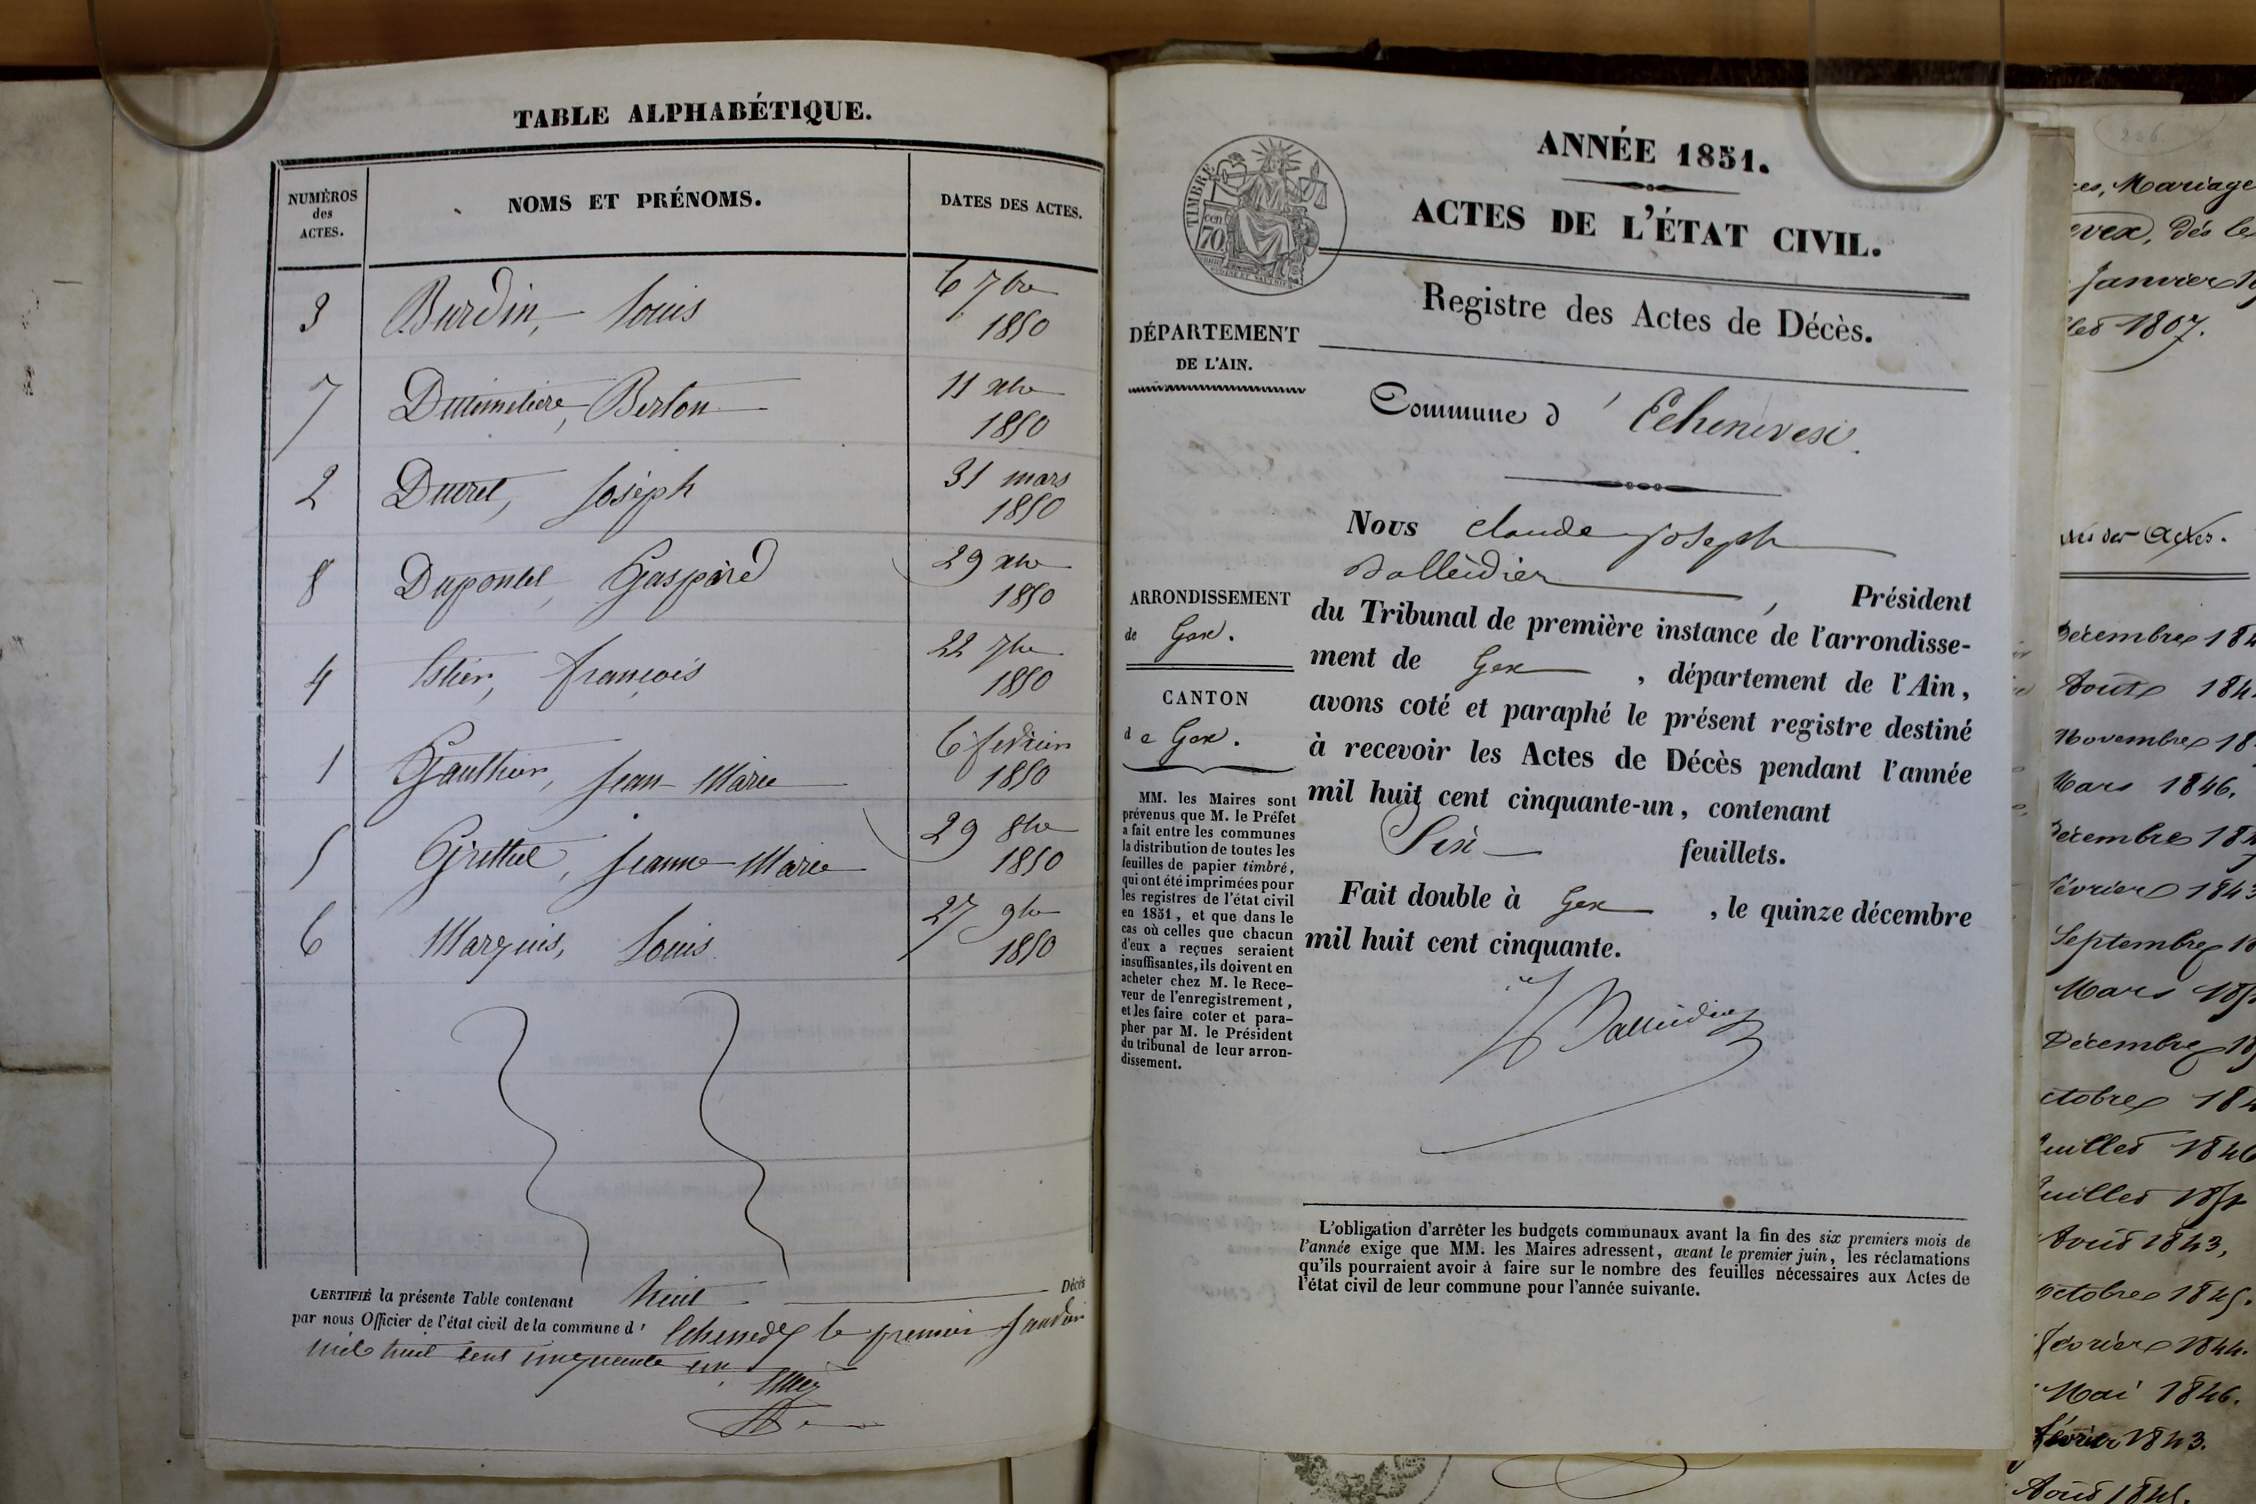 TABLE ALPHABÉTIQUE.
NUMÉROS des ACTES.
NOMS ET PRÉNOMS.
DATES DES ACTES.
3 Burdin, Louis 6 7bre 1850
7 Dutimeliere, Berlon 11 xbre 1850
2 Duret, Joséph 31 mars 1850
8 Dupontet, Gaspard 29 xbre 1850
4 François 22 7bre 1850
1 Gauthier, Jean-Marie 6 fevrier 1850
5 Jeanne-Marie 29 8bre 1850
6 Marquis, Louis 27 9bre 1850
CERTIFIÉ la présente Table contenant huit Décès
par nous Officier de l'état civil de la commune d' Echenevex le premier Janvier
mil huit cent cinquante un.
TIMBRE
70 cen
ANNÉE 1851.
ACTES DE L'ÉTAT CIVIL.
Registre des Actes de Décès.
DÉPARTEMENT
DE L'AIN.
Commune d' Echenevex.
Nous Claude Joseph
Balleidier, Président
du Tribunal de première instance de l'arrondisse-
ment de Gex, département de l'Ain,
avons coté et paraphé le présent registre destiné
à recevoir les Actes de Décès pendant l'année
mil huit cent cinquante-un, contenant
Six feuillets.
Fait double à Gex, le quinze décembre
mil huit cent cinquante.
Balleidier
ARRONDISSEMENT
de Gex.
CANTON
de Gex.
MM. les Maires sont
prévenus que M. le Préfet
a fait entre les communes
la distribution de toutes les
feuilles de papier timbré,
qui ont été imprimées pour
les registres de l'état civil
en 1851, et que dans le
cas où celles que chacun
d'eux a reçues seraient
insuffisantes, ils doivent en
acheter chez M. le Rece-
veur de l'enregistrement,
et les faire coter et para-
pher par M. le Président
du tribunal de leur arron-
dissement.
L'obligation d'arrêter les budgets communaux avant la fin des six premiers mois de
l'année exige que MM. les Maires adressent, avant le premier juin, les réclamations
qu'ils pourraient avoir à faire sur le nombre des feuilles nécessaires aux Actes de
l'état civil de leur commune pour l'année suivante.
206
Mariage
evex, dès le
Janvier
1807.
des Actes.
Décembre 184
Août 184
Novembre 18
Mars 1846.
Décembre 184
Février 1843
Septembre 18
Mars 185
Décembre 18
ctobre 184
uillet 1846
uillet 185
Août 1843,
Octobre 1845.
Février 1844.
Mai 1846.
Février 1843.
Août 1845.